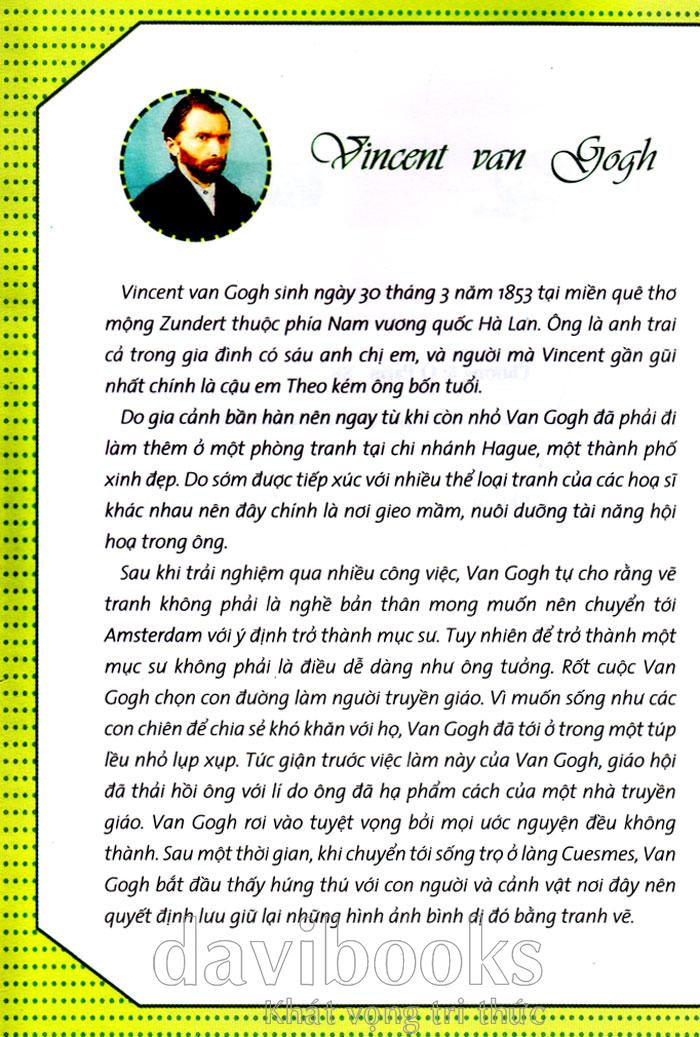 Vincent van Gogh
Vincent van Gogh sinh ngày 30 tháng 3 năm 1853 tại miền quê thơ
mộng Zundert thuộc phía Nam vương quốc Hà Lan. Ông là anh trai
cả trong gia đình có sáu anh chị em, và người mà Vincent gần gũi
nhất chính là cậu em Theo kém ông bốn tuổi.
Do gia cảnh bần hàn nên ngay từ khi còn nhỏ Van Gogh đã phải đi
làm thêm ở một phòng tranh tại chi nhánh Hague, một thành phố
xinh đẹp. Do sớm được tiếp xúc với nhiều thể loại tranh của các hoạ sĩ
khác nhau nên đây chính là nơi gieo mầm, nuôi dưỡng tài năng hội
hoạ trong ông.
Sau khi trải nghiệm qua nhiều công việc, Van Gogh tự cho rằng vẽ
tranh không phải là nghề bản thân mong muốn nên chuyển tới
Amsterdam với ý định trở thành mục sư. Tuy nhiên để trở thành một
mục sư không phải là điều dễ dàng như ông tưởng. Rốt cuộc Van
Gogh chọn con đường làm người truyền giáo. Vì muốn sống như các
con chiên để chia sẻ khó khăn với họ, Van Gogh đã tới ở trong một túp
lều nhỏ lụp xụp. Tức giận trước việc làm này của Van Gogh, giáo hội
đã thải hồi ông với lí do ông đã hạ phẩm cách của một nhà truyền
giáo. Van Gogh rơi vào tuyệt vọng bởi mọi ước nguyện đều không
thành. Sau một thời gian, khi chuyển tới sống trọ ở làng Cuesmes, Van
Gogh bắt đầu thấy hứng thú với con người và cảnh vật nơi đây nên
quyết định lưu giữ lại những hình ảnh bình dị đó bằng tranh vẽ.
davibooks
Khát vọng tri thức